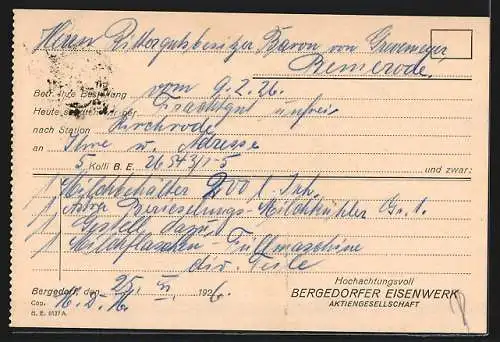 Herrn Rittergutsbesitzer Baron von Grevemeyer,
Bemerode.
Betr. Ihre Bestellung vom 9.2.26.
Heute sandten wir per Frachtgut unfrei
nach Station Kirchrode
an Ihre w. Adresse
5 Kolli B. E. 26543/1-5 und zwar:
1 Milchbehälter 200 l. Inh.
1 Astra Berieselungs-Milchkühler Gr. 1.
1 Gestell dazu
1 Milchflaschen-Füllmaschine
div. Teile
Bergedorf, den 25. II. 1926.
Hochachtungsvoll
BERGEDORFER EISENWERK
AKTIENGESELLSCHAFT
B. E. 6137A.